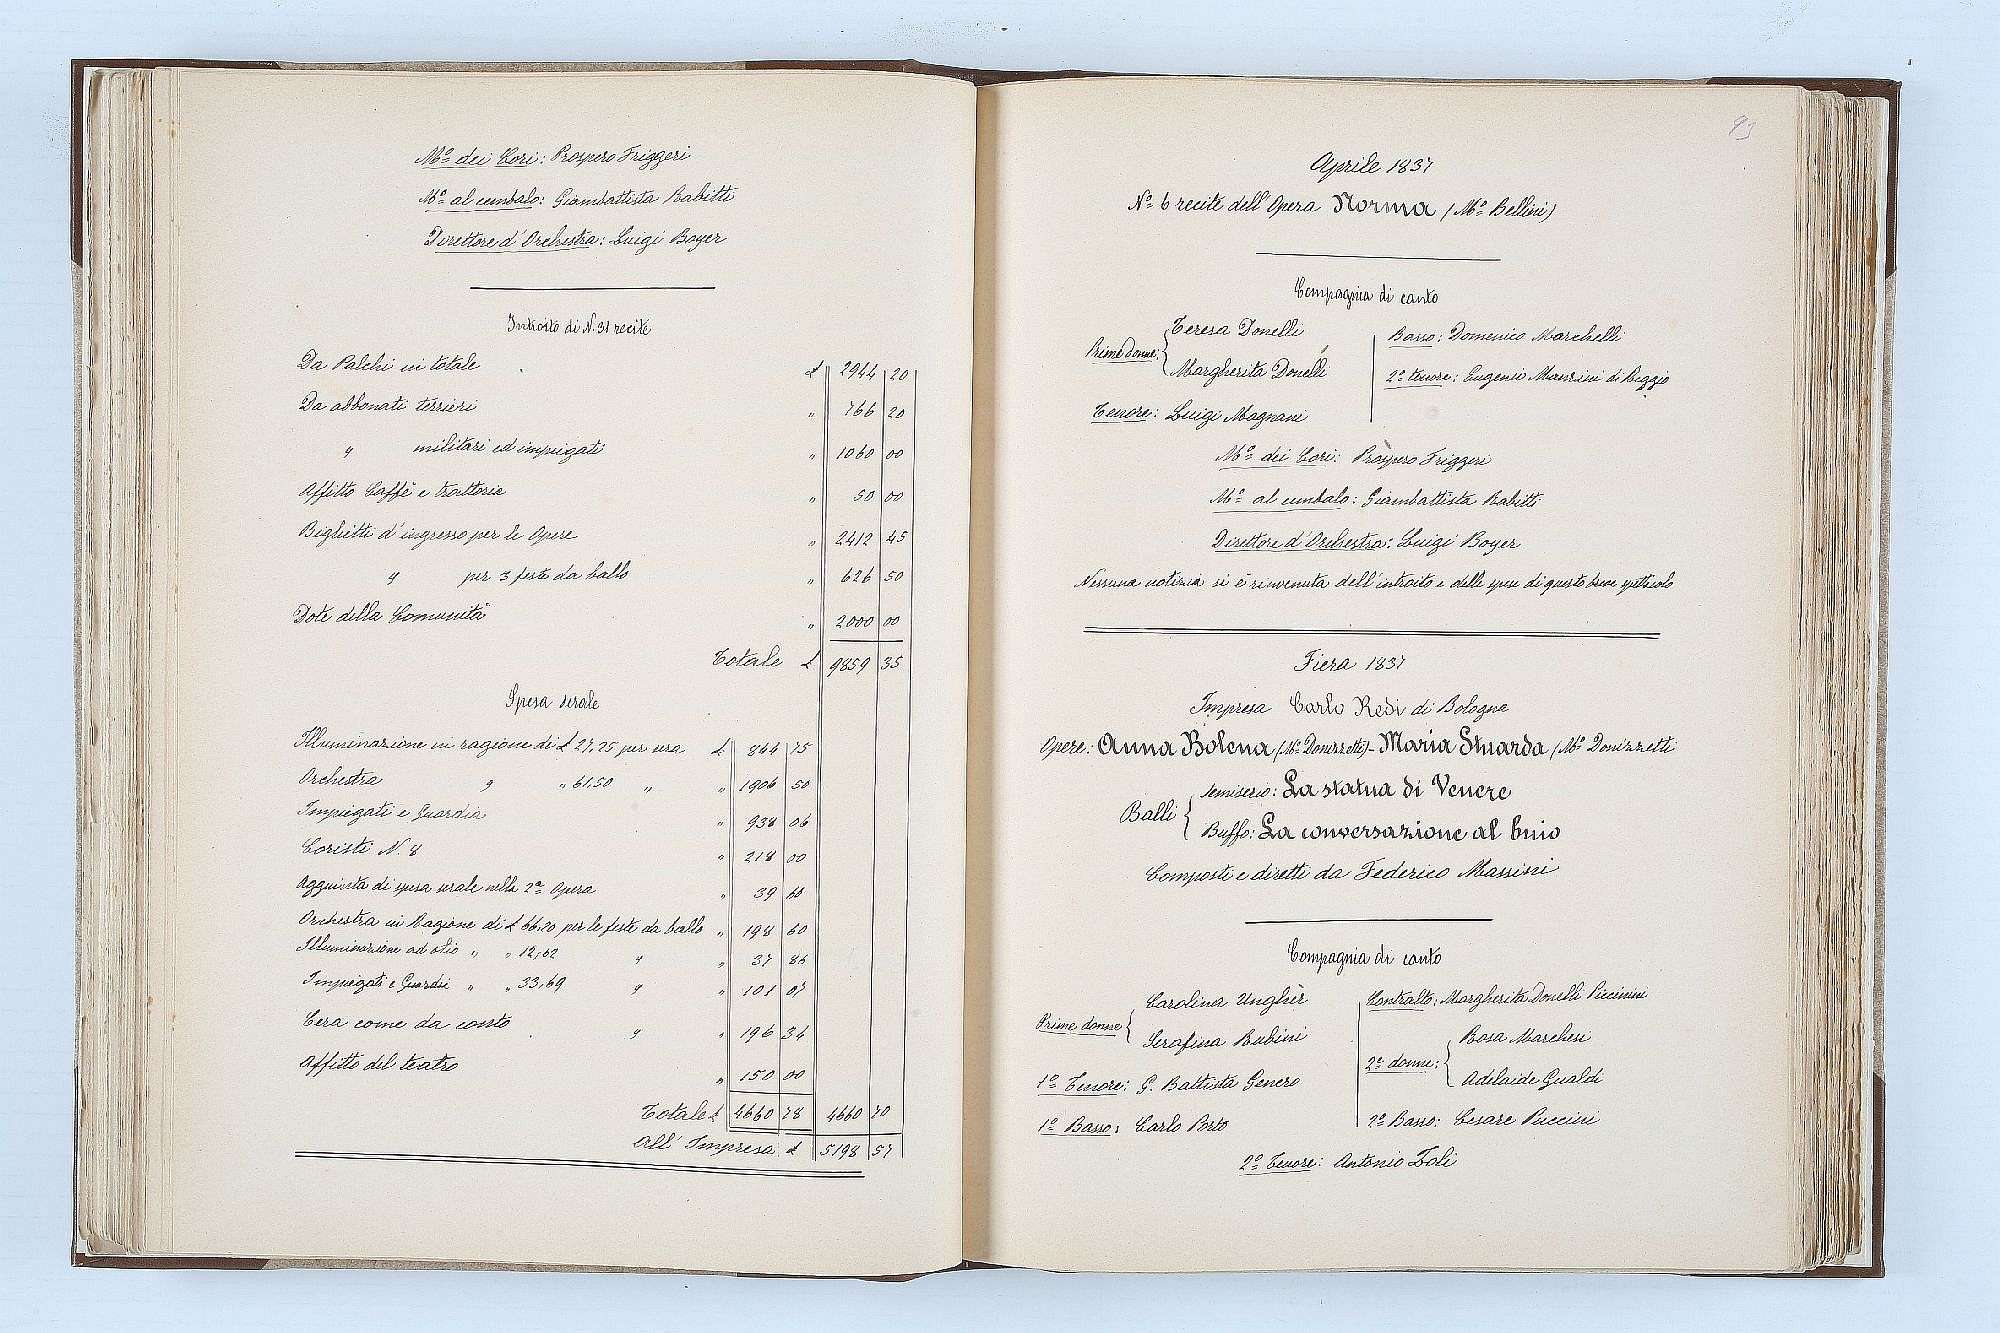 Mo dei Cori: Prospero Friggeri
Mo al cembalo: Giambattista Rabitti
Direttore d'Orchestra: Luigi Boyer
Introito di N. 31 recite
Da Palchi in totale £ 2944 20
Da abbonati terrieri " 766 20
" militari ed impiegati " 1060 00
Affitto Caffè e trattorie " 50 00
Biglietti d'ingresso per le Opere " 2412 45
" per 3 feste da ballo " 626 50
Dote della Comunità " 2000 00
Totale £ 9859 35
Spesa serale
Illuminazione in ragione di £ 27,25 per sera £ 844 75
Orchestra " " 61,50 " " 1906 50
Impiegati e Guardia " 938 06
Coristi N. 8 " 218 00
Aggiunta di spesa serale nella 2a Opera " 39 60
Orchestra in Ragione di £ 66.20 per le feste da ballo " 198 60
Illuminazione ad olio " " 12,62 " " 37 86
Impiegati e Guardie " " 33,69 " " 101 07
Cera come da conto " " 196 34
Affitto del teatro " 150 00
Totale £ 4660 78 4660 70
All' Impresa £ 5198 57
93
Aprile 1837
No 6 recite dell' Opera Norma (Mo Bellini)
Compagnia di canto
Prime donne: { Teresa Donelli
Margherita Donelli
Tenore: Luigi Magnani
Basso: Domenico Marchelli
2o tenore: Eugenio Manzini di Reggio
Mo dei Cori: Prospero Friggeri
Mo al cembalo: Giambattista Rabitti
Direttore d'Orchestra: Luigi Boyer
Nessuna notizia si è rinvenuta dell'introito e delle spese di questo breve spettacolo
Fiera 1837
Impresa Carlo Redi di Bologna
Opere: Anna Bolena (Mo Donizzetti) - Maria Stuarda (Mo Donizzetti
Balli { semiserio: La statua di Venere
Buffo: La conversazione al buio
Composti e diretti da Federico Massini
Compagnia di canto
Prime donne { Carolina Unghèr
Serafina Rubini
1o Tenore: G. Battista Genero
1o Basso: Carlo Porto
Contralto: Margherita Donelli Piccinini
2e donne: { Rosa Marchesi
Adelaide Gualdi
2o Basso: Cesare Puccini
2o Tenore: Antonio Zoli